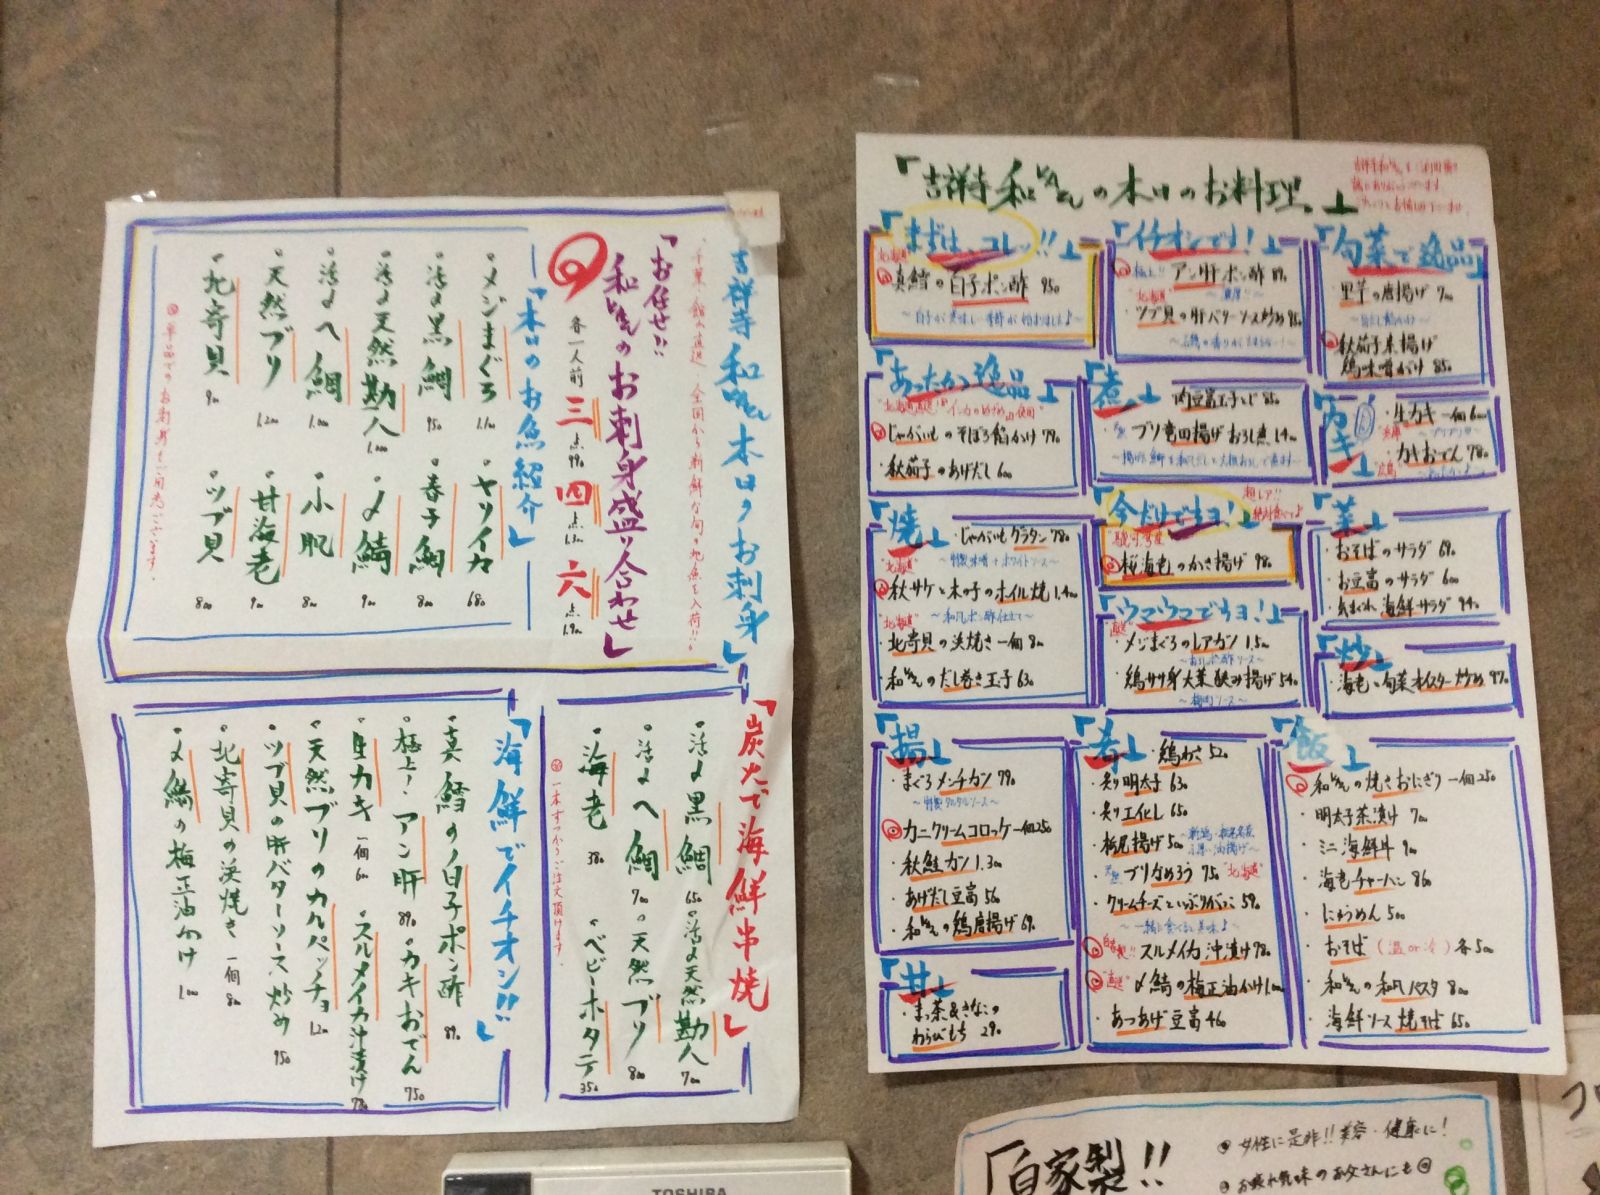 吉祥寺 和
本日のお刺身」
「お任せ!!
和
のお刺身盛り合わせ」
各一人前 三点 990 四点 1.300 六点 1.900
「本日のお魚紹介」
・メジまぐろ 1.100
・活〆黒鯛 950
・活〆天然勘八 1.000
・活〆へ鯛 1.000
・天然ブリ 1.200
・北寄貝 900
・ヤリイカ 680
・春子鯛 800
・〆鯖 900
・小肌 800
・甘海老 900
・ツブ貝 800
「炭火で海鮮串焼」
・活〆黒鯛 650
・活〆天然勘八 700
・活〆へ鯛 700
・天然ブリ 800
・海老 380
・ベビーホタテ 350
一本ずつからご注文頂けます。
「海鮮でイチオシ!!」
・真鱈の白子ポン酢 890
・極上!アン肝 890
・カキおでん 750
・生カキ 一個 600
・スルメイカ沖漬け 780
・天然ブリのカルパッチョ 1.200
・ツブ貝の肝バターソース炒め 950
・北寄貝の浜焼き 一個 800
・〆鯖の梅正油かけ 1.000
「吉祥寺 和
の本日のお料理。」
「まずは、コレッ!!」
北海道
真鱈の白子ポン酢 950
「イチオシです!」
極上!! アン肝ポン酢
北海道
ツブ貝の肝バターソース炒め
「旬菜で逸品」
・里芋の唐揚げ 700
・秋茄子素揚げ
鶏味噌がけ 850
「あったかつ逸品」
じゃがいものそぼろ餡かけ 790
・秋茄子のあげだし 600
「煮」
肉豆富玉子とじ 850
ブリ竜田揚げおろし煮 1.400
「カキ」
・生カキ 一個 600
・カキおでん 780
広島
「焼」
・じゃがいもグラタン 780
〜特製味噌+ホワイトソース〜
北海道
・秋サケと木の子のホイル焼 1.400
〜和風ポン酢仕立て〜
北海道
・北寄貝の浜焼き 一個 800
・和
のだし巻き玉子 630
「今だけですヨ!」
超レア!!
駿河湾産
・桜海老のかき揚げ 980
「ウマウマですヨ!」
・メジまぐろのレアカツ 1.500
・鶏ササ身大葉挟み揚げ 540
〜梅肉ソース〜
「菜」
・おそばのサラダ 690
・お豆富のサラダ 600
・気まぐれ海鮮サラダ 940
「炒」
・海老と旬菜オイスター炒め 970
「揚」
・まぐろメンチカツ 790
〜特製タルタルソース〜
カニクリームコロッケ 一個 250
・秋鮭カツ 1.300
・あげだし豆富 560
・和
の鶏唐揚げ 690
「甘」
・まっ茶&きなこの
わらびもち 290
「肴」
・鶏わさ 520
・炙り明太子 630
・炙りエイヒレ 650
・栃尾揚げ 500
・ブリなめろう 950 "北海道"
・クリームチーズといぶりがっこ 590
〜一緒に食べると美味♪〜
スルメイカ沖漬け 980
〆鯖の梅正油かけ 1.000
・あつあげ豆富 460
「飯」
和
の焼きおにぎり 一個 250
・明太子茶漬け 700
・ミニ海鮮丼 900
・海老チャーハン 860
・にゅうめん 500
・おそば(温or冷)各 500
・和
の和風パスタ 800
・海鮮ソース焼そば 650
「自家製!!
◎女性に是非!!美容・健康に!
◎お疲れ気味のお父さんにも◎
TOSHIBA